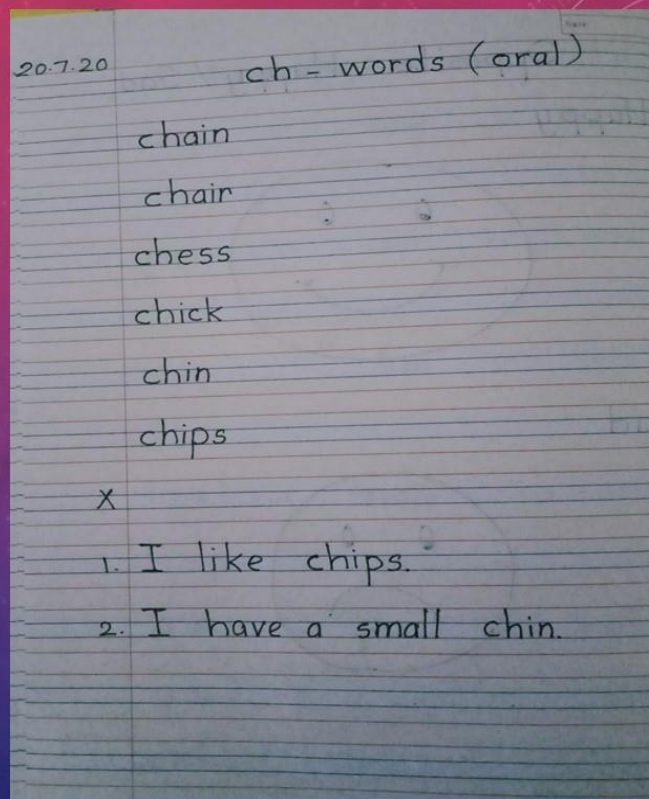 20.7.20 ch - words (oral)
chain
chair
chess
chick
chin
chips
X
1. I like chips.
2. I have a small chin.